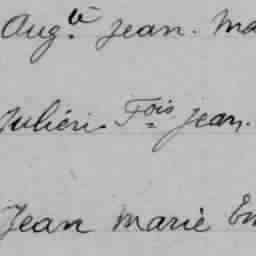 Augte Jean. Ma
Julien Fois Jean.
Jean Marie Em